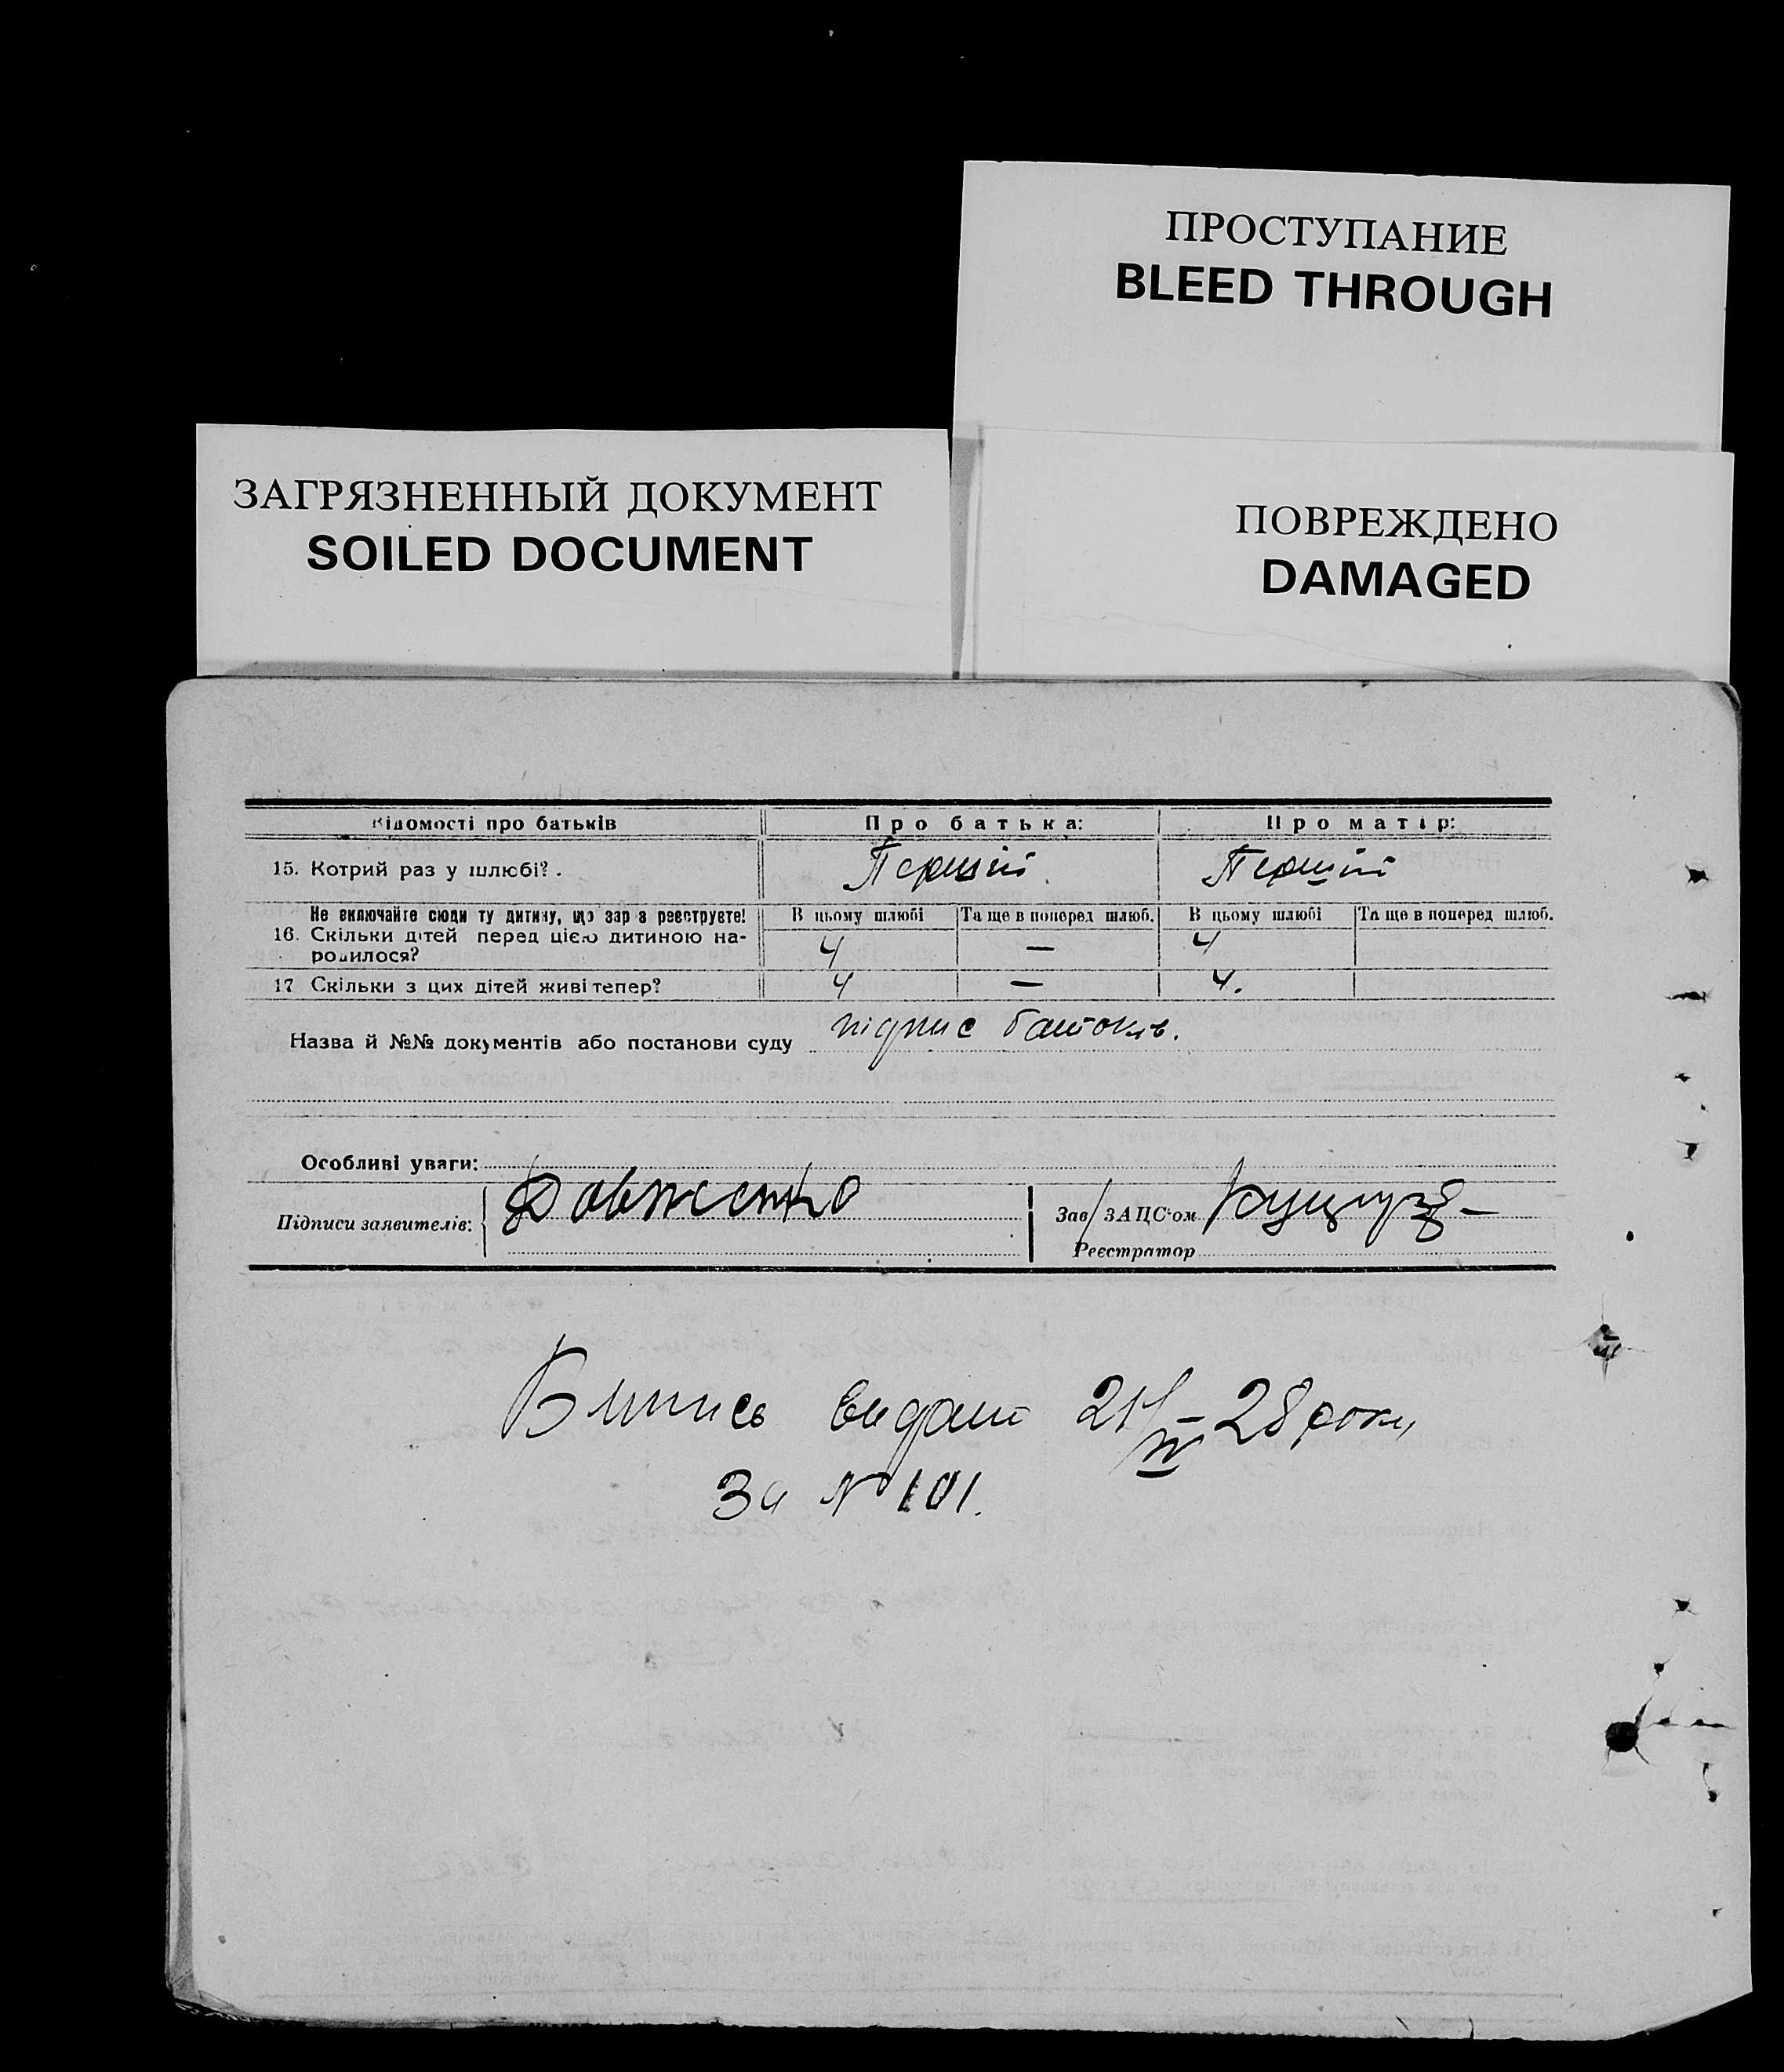 ПРОСТУПАНИЕ
BLEED THROUGH
ЗАГРЯЗНЕННЫЙ ДОКУМЕНТ
SOILED DOCUMENT
ПОВРЕЖДЕНО
DAMAGED
Відомості про батьків Про батька: Про матір:
15. Котрий раз у шлюбі? . Перший Перший
Не включайте сюди ту дитину, що зараз реєструєте! В цьому шлюбі Та ще в поперед шлюб. В цьому шлюбі Та ще в поперед шлюб.
16. Скільки дітей перед цією дитиною на-
родилося? 4 — 4
17 Скільки з цих дітей живі тепер? 4 — 4.
Назва й №№ документів або постанови суду підпис батьків.
Особливі уваги:
Підписи заявителів: Довженко Зав/ЗАЦС'ом
Реєстратор
Випись видат 21/IV – 28 року
За № 101.